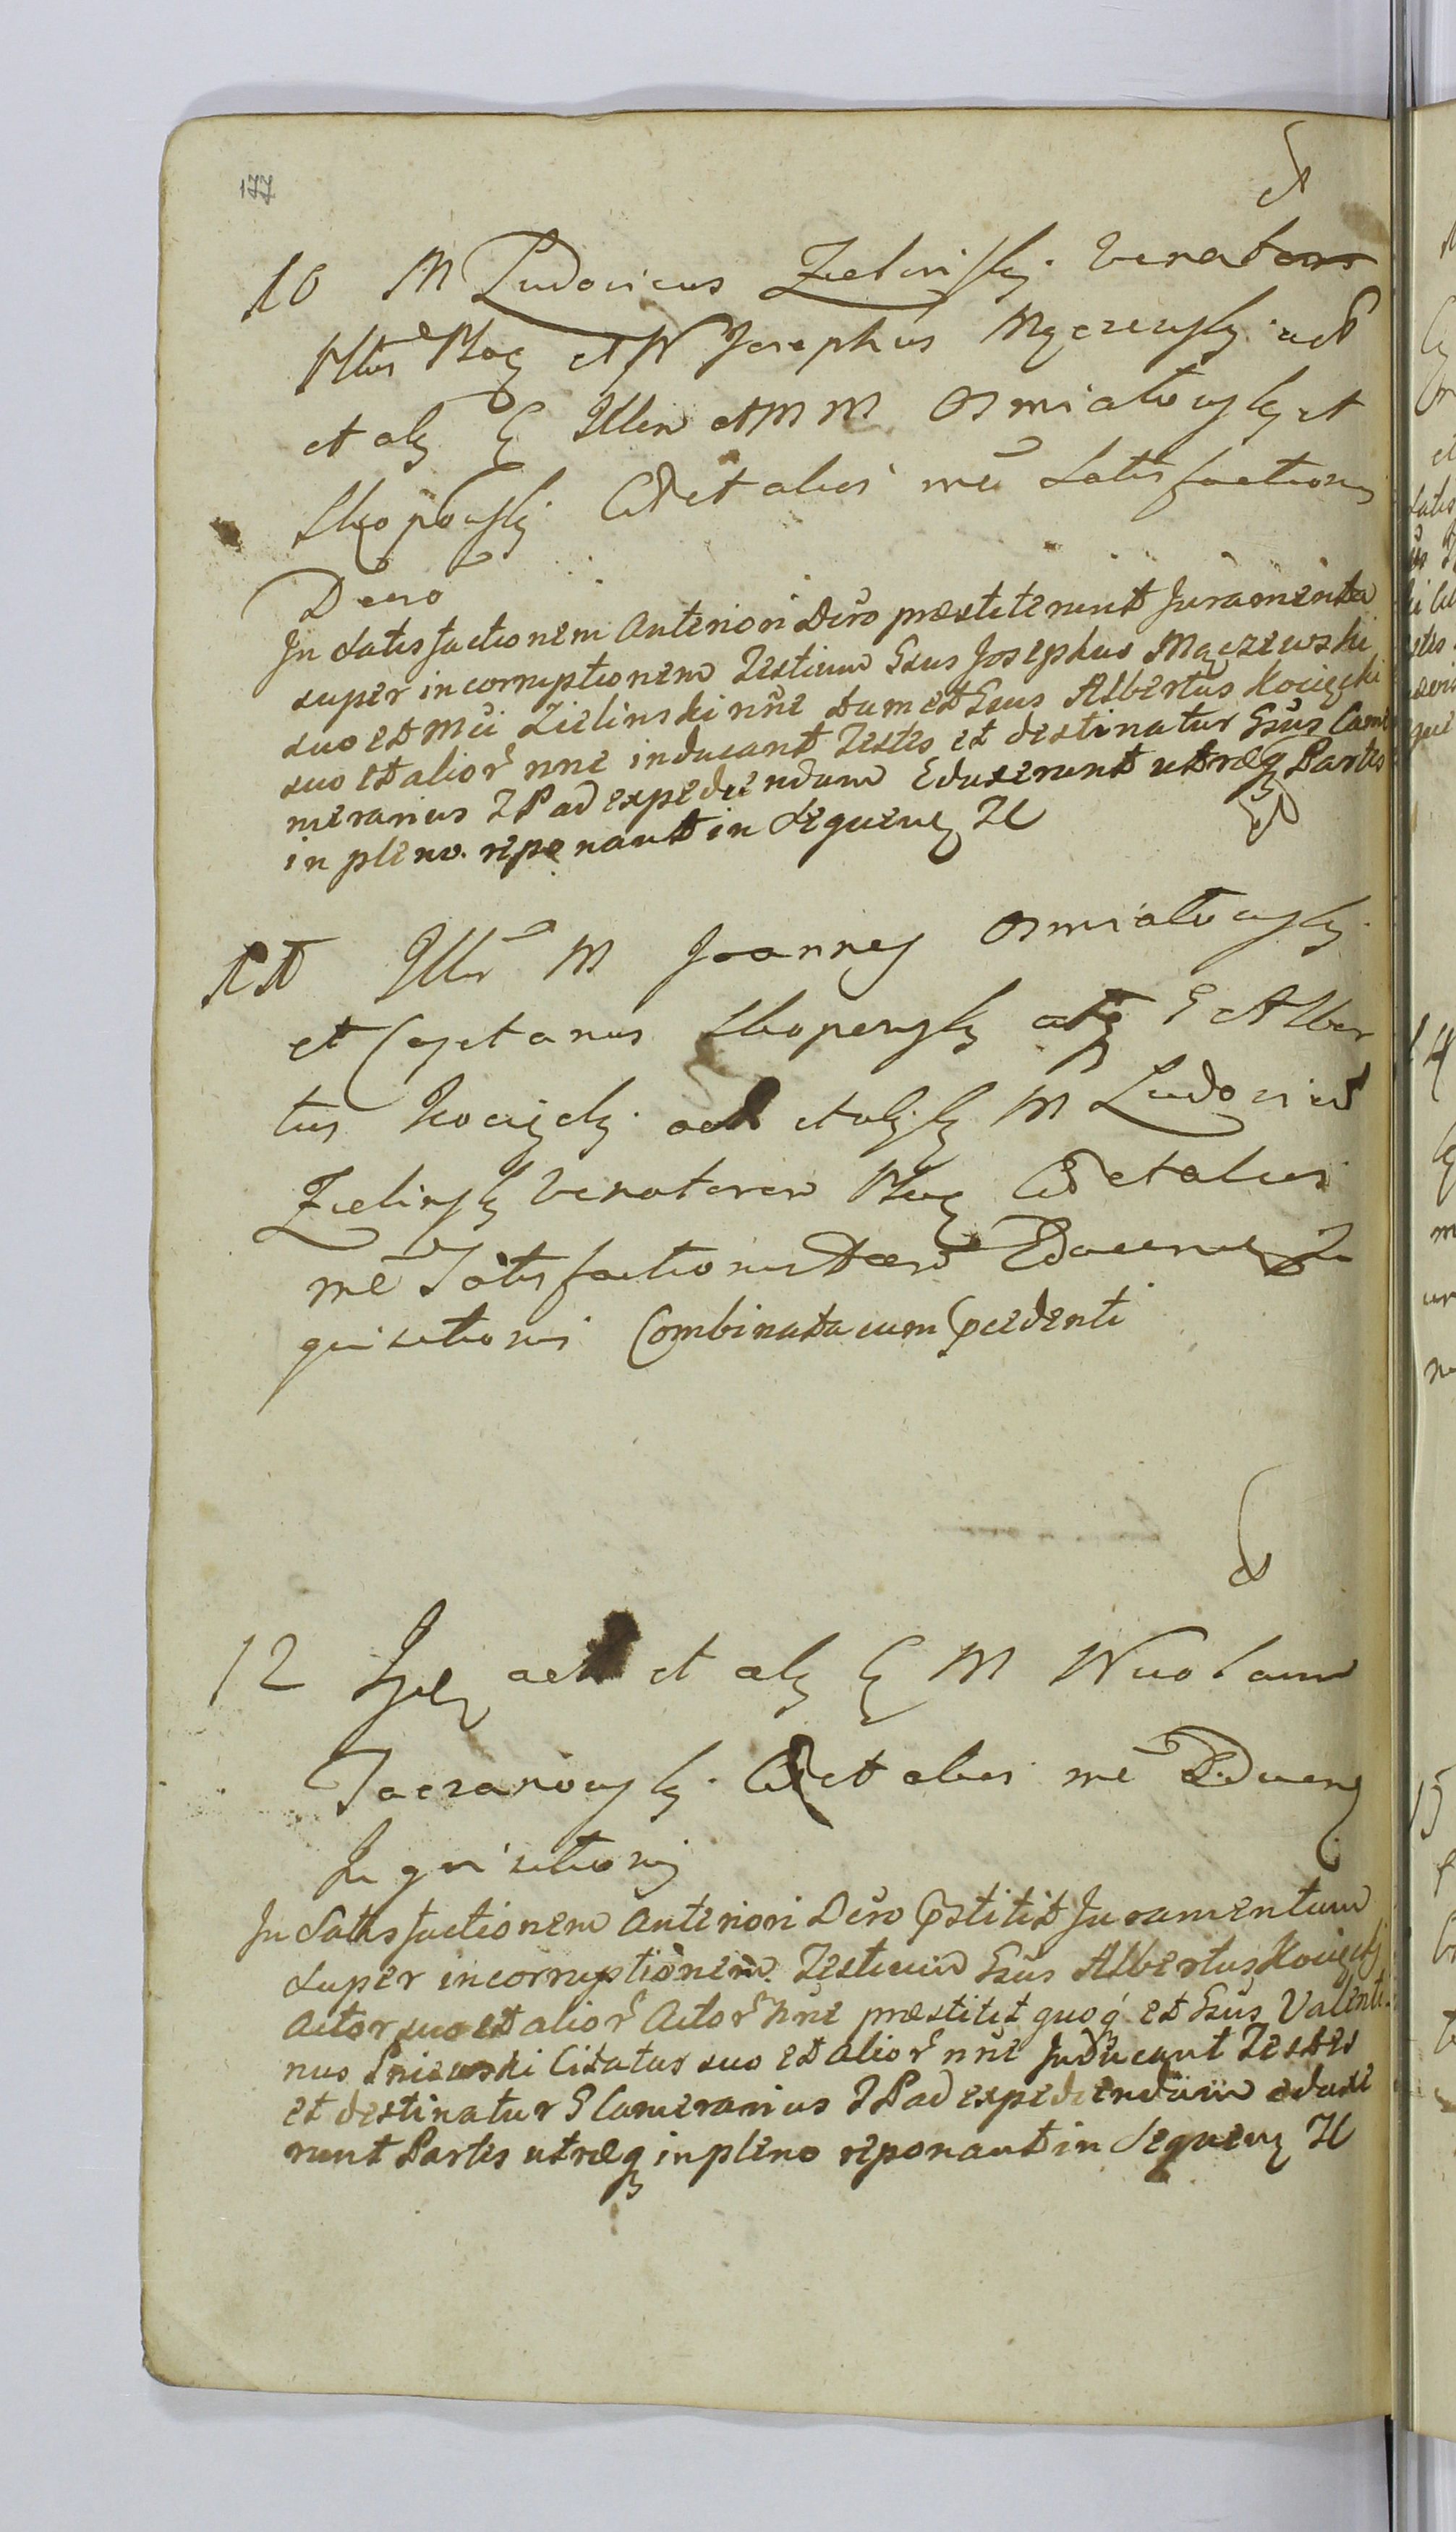 177
10 M Ludovicus Zielinsky Venator
et N Josephus Mączewsky act
et alÿ Illrem et M M Osmiałowsky et
Skopowsky Ctt et alios mẽ Satisfactionis
Decro
In Satisfactionem Anteriori Dẽro præstiterunt Juramenta
super incorruptionem Testium Gsus Josephus Mączewski
suo et Mci Zielinski nñe tum et Gsus Albertus Kocięcki
suo et alior nne inducant Testes et destinatur Gsus Came
merarius T P ad expediendum Eduxerunt utræq Partes
in pleno reponant in Sequenꝫ TC
11 Illr M Joannes Osmiałowsky
et Cajetanus Skopowsky alÿ G Alber
tus Kocięcky act et alÿ M Ludovicũ
Zielinsky Venatorem Ctt et alios
mẽ Satisfactionis Decro Educenꝫ In
quisitionis Combinata cum Pcedenti
12 act et alÿ M
Taczanowsky Ctt et alios mẽ Educenꝫ
Inquisitionis
In Satisfactionem Anteriori Dẽro Pstitit Juramentum
Super incorruptionem Testium Gsũs Albertus Kocięcki
Actor suo et alior Actor nñe præstitit quoq et Gsũs Valenti
nus Śniewski Citatus suo et alior nñe Inducant Testes
et destinatur G Camerarius T P ad expediendum eduxe
runt Partes utræq in pleno reponant in Sequenꝫ TC